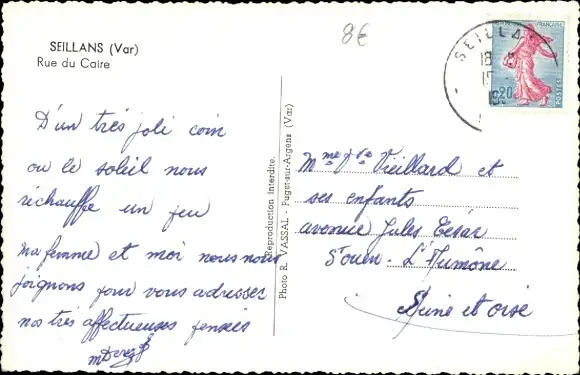 SEILLANS (Var)
Rue du Caire
8€
D'un très joli coin
ou le soleil nous
réchauffe un peu
ma femme et moi nous nous
joignons pour vous adresser
nos très affectueuses pensées
Reproduction interdite.
Photo R. VASSAL - Puget-sur-Argens (Var)
SEILLA
18
0,20
POSTES
FRANÇAISE
Mme Vve Vieillard et
ses enfants
avenue Jules César
St ouen - L'Aumône
Seine et oise